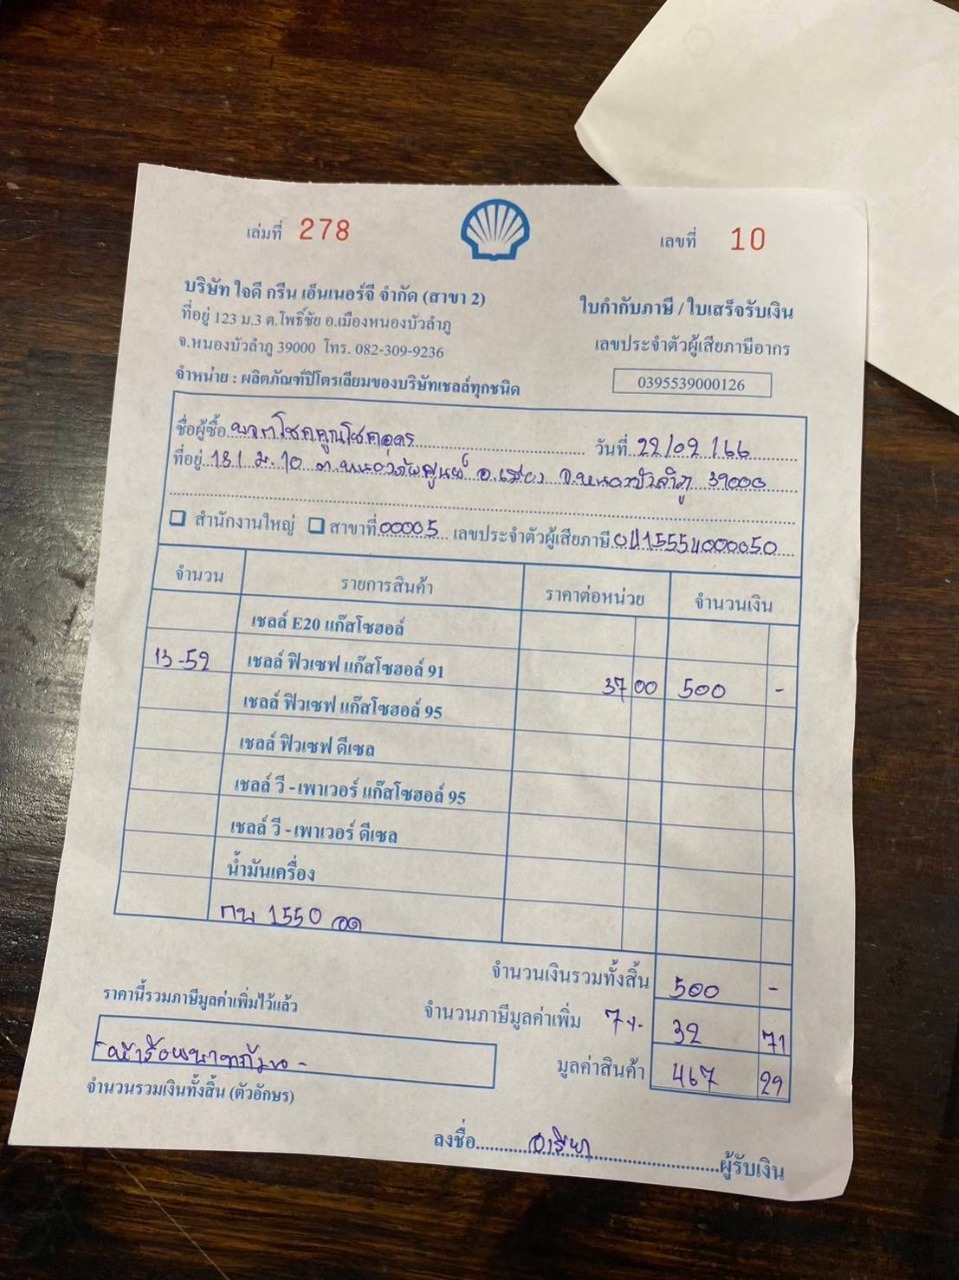 เล่มที่ 278
เลขที่ 10
บริษัท ใจดี กรีน เอ็นเนอร์จี จำกัด (สาขา 2)
ที่อยู่ 123 ม.3 ต.โพธิ์ชัย อ.เมืองหนองบัวลำภู
จ.หนองบัวลำภู 39000 โทร. 082-309-9236
จำหน่าย : ผลิตภัณฑ์ปิโตรเลียมของบริษัทเชลล์ทุกชนิด
ใบกำกับภาษี / ใบเสร็จรับเงิน
เลขประจำตัวผู้เสียภาษีอากร
0395539000126
ชื่อผู้ซื้อ วันที่ 22/02/66
ที่อยู่ 181 ม.10 ต. อ.เมือง จ.หนองบัวลำภู 39000
สำนักงานใหญ่ สาขาที่ 00005 เลขประจำตัวผู้เสียภาษี 0415554000050
จำนวน รายการสินค้า ราคาต่อหน่วย จำนวนเงิน
เชลล์ E20 แก๊สโซฮอล์
13-52 เชลล์ ฟิวเซฟ แก๊สโซฮอล์ 91 37 00 500 -
เชลล์ ฟิวเซฟ แก๊สโซฮอล์ 95
เชลล์ ฟิวเซฟ ดีเซล
เชลล์ วี - เพาเวอร์ แก๊สโซฮอล์ 95
เชลล์ วี - เพาเวอร์ ดีเซล
น้ำมันเครื่อง
กษ 1550 อด
จำนวนเงินรวมทั้งสิ้น 500 -
ราคานี้รวมภาษีมูลค่าเพิ่มไว้แล้ว
จำนวนภาษีมูลค่าเพิ่ม 7% 32 71
มูลค่าสินค้า 467 29
- ห้าร้อยบาทถ้วน -
จำนวนรวมเงินทั้งสิ้น (ตัวอักษร)
ลงชื่อ ผู้รับเงิน